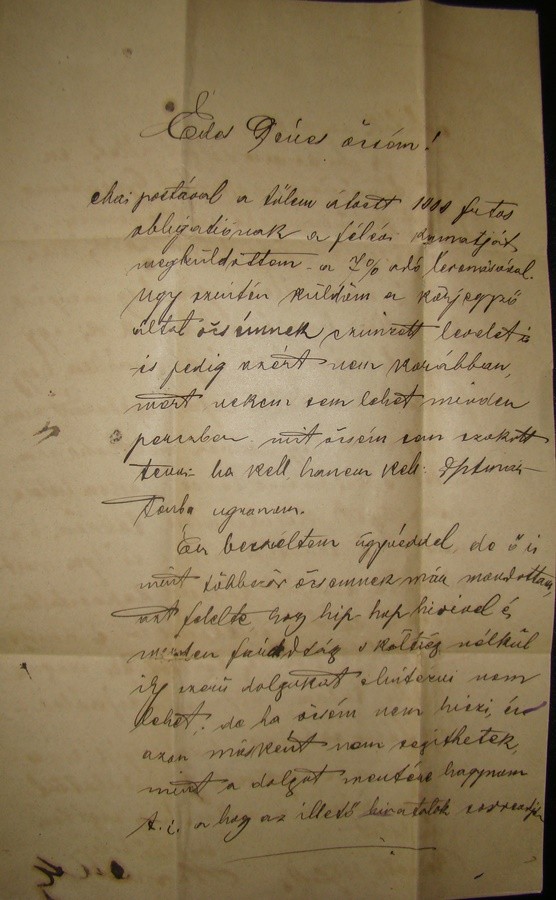 Édes Dénes öcsém!
Mai postával a tőlem átvett 1000 frtos
obligatiónak a félévi kamatját
megküldöttem – a 7% adó levonásával.
Ugy szintén küldöm a közjegyző
által öcsémnek czimzett levelet is
és pedig azért nem korábban,
mert nekem sem lehet minden
perczben, mit öcsém sem szokott
tenni – ha kell, hanem kell:
tomba ugranom.
Én beszéltem ügyvéddel, de ő is
mint többször öcsémnek már mondottam,
azt felelte, hogy hip-hop hirével és
minden fáradság s költség nélkül
ily szerü dolgokat elintézni nem
lehet; de ha öcsém nem hiszi, én
azon másként nem segithetek,
mint a dolgot mentére hagynom
t. i. a hogy az illető hivatalok